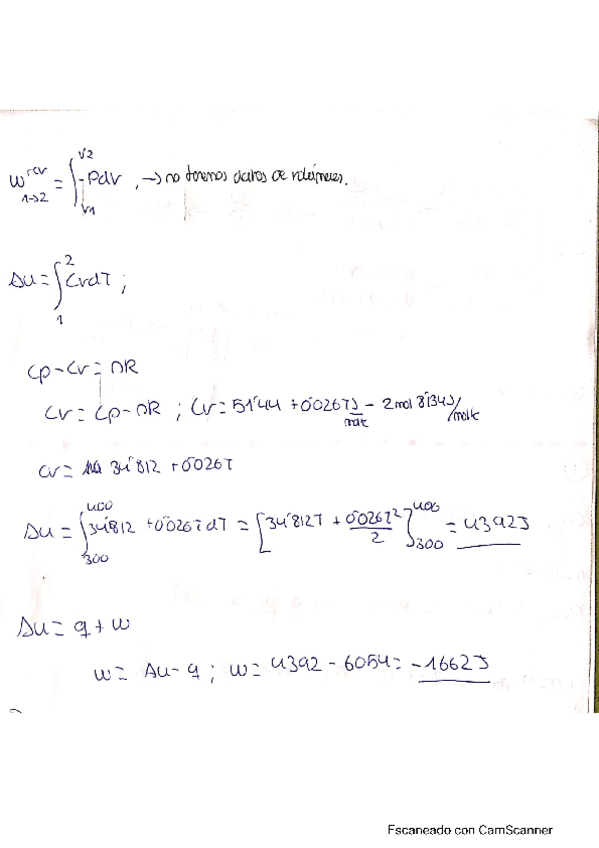 w^rev_1→2 = ∫_V1^V2 -Pdv , → no tenemos datos de volúmenes.
Δu = ∫_1^2 CvdT ;
Cp-Cv = nR
Cv = Cp-nR ; Cv = 51'44 + 0'026TJ/ - 2mol 8'134J/molK
Cv = 34'812 + 0'026T
Δu = ∫_300^400 34'812 + 0'026T dT = [34'812T + 0'026T²/2]_300^400 = 4392J
Δu = q + w
w = Δu - q ; w = 4392 - 6054 = -1662J
Escaneado con CamScanner